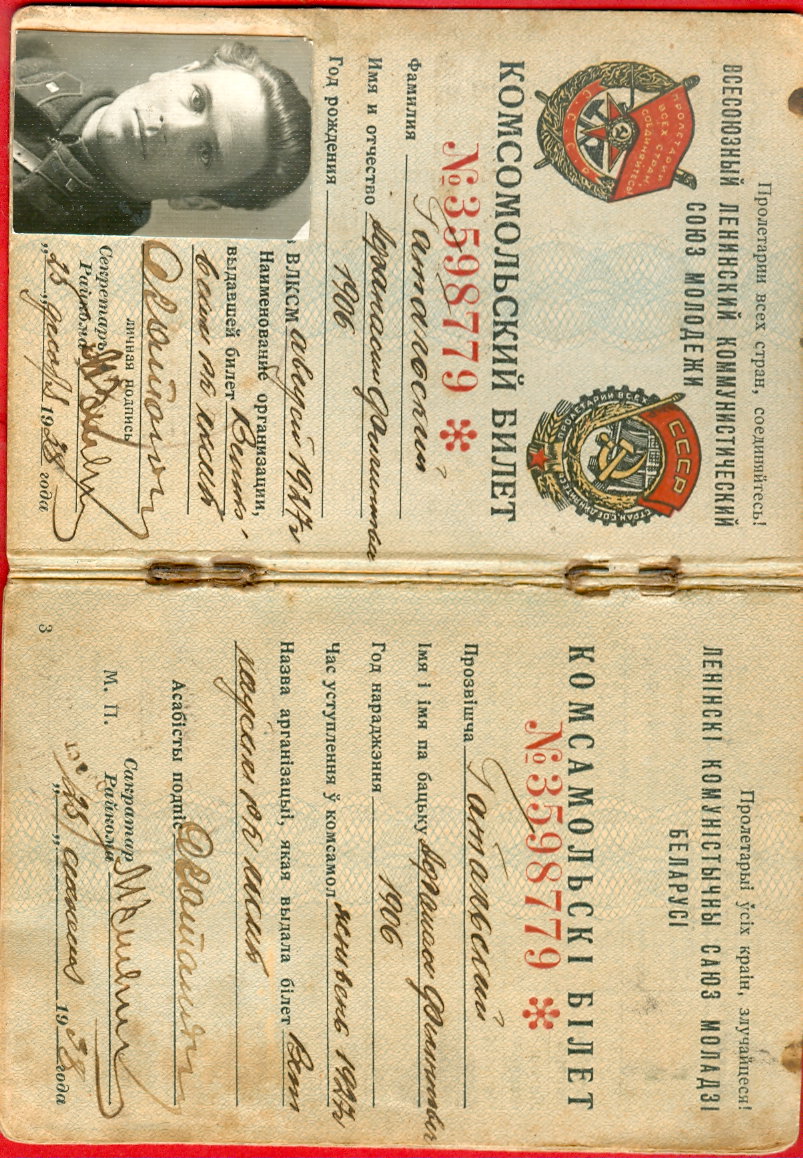 Пролетарии всех стран, соединяйтесь!
ВСЕСОЮЗНЫЙ ЛЕНИНСКИЙ КОММУНИСТИЧЕСКИЙ
СОЮЗ МОЛОДЕЖИ
ПРОЛЕТАРИИ ВСЕХ СТРАН, СОЕДИНЯЙТЕСЬ!
С. С. С. Р.
ПРОЛЕТАРИИ ВСЕХ СТРАН, СОЕДИНЯЙТЕСЬ
СССР
КОМСОМОЛЬСКИЙ БИЛЕТ
№3598779
Фамилия Гатальский
Имя и отчество Афанасий Филиппович
Год рождения 1906
ВЛКСМ август 1927г
Наименование организации,
выдавшей билет
личная подпись
Секретарь
Райкома
„25" 1938 года
Пролетарыі ўсіх краін, злучайцеся!
ЛЕНІНСКІ КОМУНІСТЫЧНЫ САЮЗ МОЛАДЗІ
БЕЛАРУСІ
КОМСАМОЛЬСКІ БІЛЕТ
№3598779
Прозвішча Гатальский
Імя і імя па бацьку
Год нараджэння 1906
Час уступлення ў комсамол жнівень 1927г
Назва арганізацыі, якая выдала білет
Асабісты подпіс
М. П.
Сакратар
Райкома
„25" 1938 года
3